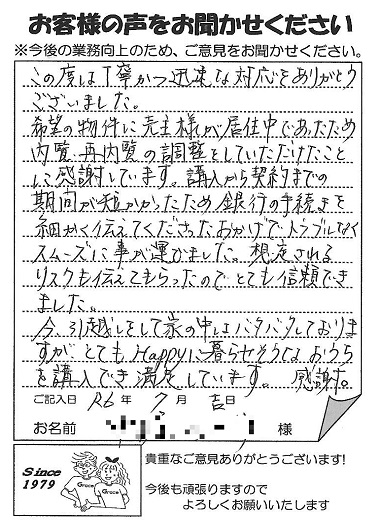 お客様の声をお聞かせください
※今後の業務向上のため、ご意見をお聞かせください。
この度は丁寧かつ迅速な対応をありがとう
ございました。
希望の物件に売主様が居住中であったため
内覧、再内覧の調整をしていただけたこと
に感謝しています。購入から契約までの
期間が短かかったため銀行の手続きを
細かく伝えてくださったおかげで、トラブルなく
スムーズに事が運びました。想定される
リスクも伝えてもらったのでとても信頼でき
ました。
今、引越しをして家の中はバタバタしておりま
すが、とてもHappyに暮らせそうなおうち
を購入でき満足しています。感謝。
ご記入日 R6年 7月 吉日
お名前 様
Since
1979
Grace
Grace
貴重なご意見ありがとうございます!
今後も頑張りますので
よろしくお願いいたします